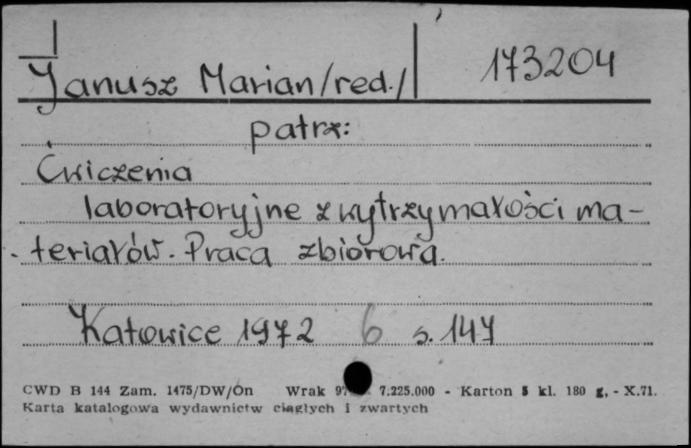 Janusz Marian /red./ 173204
patrz:
Ćwiczenia
laboratoryjne z wytrzymałości ma-
teriałów. Praca zbiorowa.
Katowice 1972 6 s. 147
CWD B 144 Zam. 1475/DW/On Wrak 7.225.000 - Karton kl. 180 g, - X.71.
Karta katalogowa wydawnictw ciągłych i zwartych